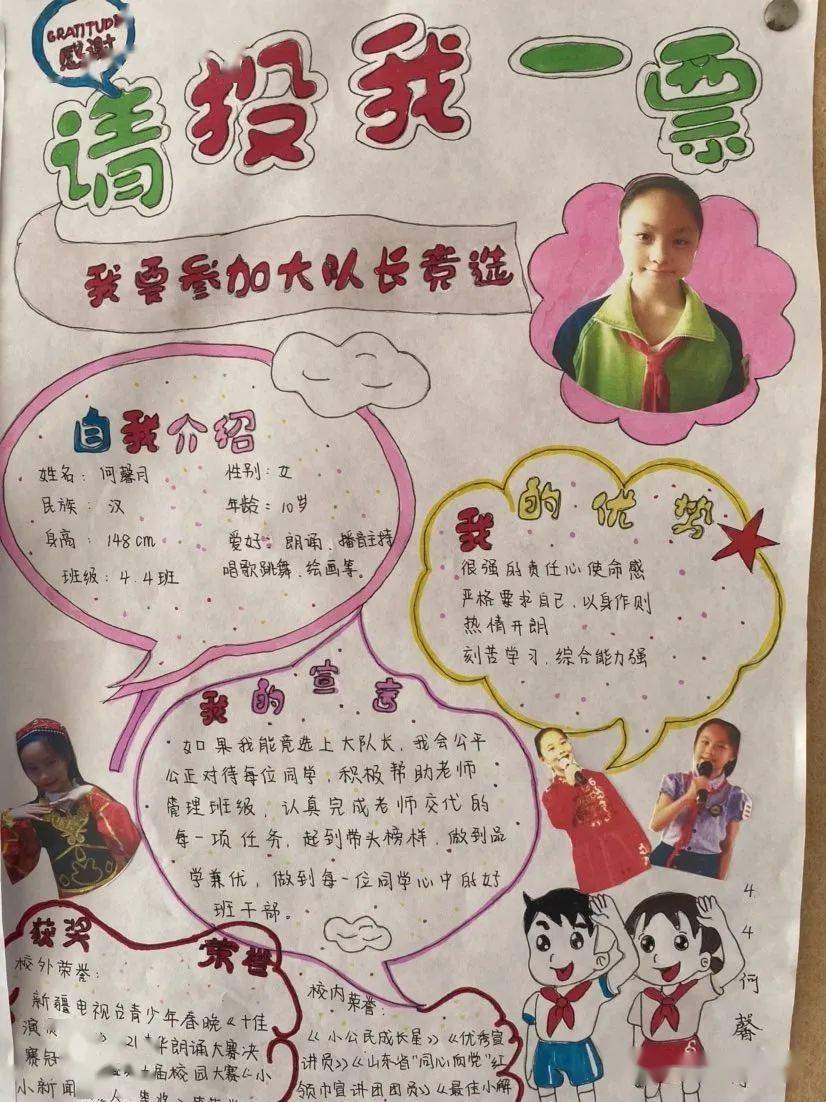 GRATITUDE
感谢
请投我一票
我要参加大队长竞选
自我介绍
姓名：何馨月 性别：女
民族：汉 年龄：10岁
身高：148cm 爱好：朗诵、播音主持
班级：4.4班 唱歌跳舞、绘画等。
我的优势
很强的责任心使命感
严格要求自己、以身作则
热情开朗
刻苦学习、综合能力强
我的宣言
如果我能竞选上大队长，我会公平
公正对待每位同学，积极帮助老师
管理班级，认真完成老师交代的
每一项任务，起到带头榜样，做到品
学兼优，做到每一位同学心中的好
班干部。
获奖荣誉
校外荣誉：
新疆电视台青少年春晚《十佳
演
21 华朗诵大赛决
赛冠 届校园大赛《小
小新闻
校内荣誉：
《小公民成长星》《优秀宣
讲员》《山东省"同心向党"红
领巾宣讲团团员》《最佳小解
4.4何馨